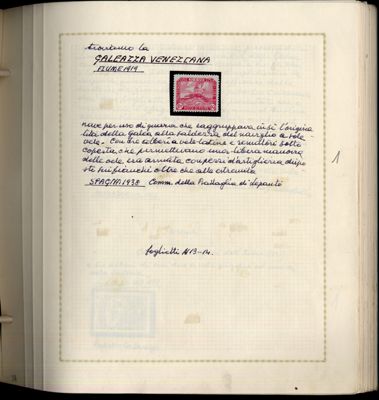 troviamo la
GALEAZZA VENEZIANA
FIUME 1919
nave per uso di guerra che raggruppava in sè l'origina
lità della galea alla saldezza del naviglio a sole
vele. Con tre alberi a vele latine e rematori sotto
coperta, che permettevano una libera manovra
delle vele, era armata con pezzi d'artiglieria dispo
sti sui fianchi oltre che alle estremità
SPAGNA 1938 Comm. della Battaglia di Lepanto
foglietti N 13-14.
1